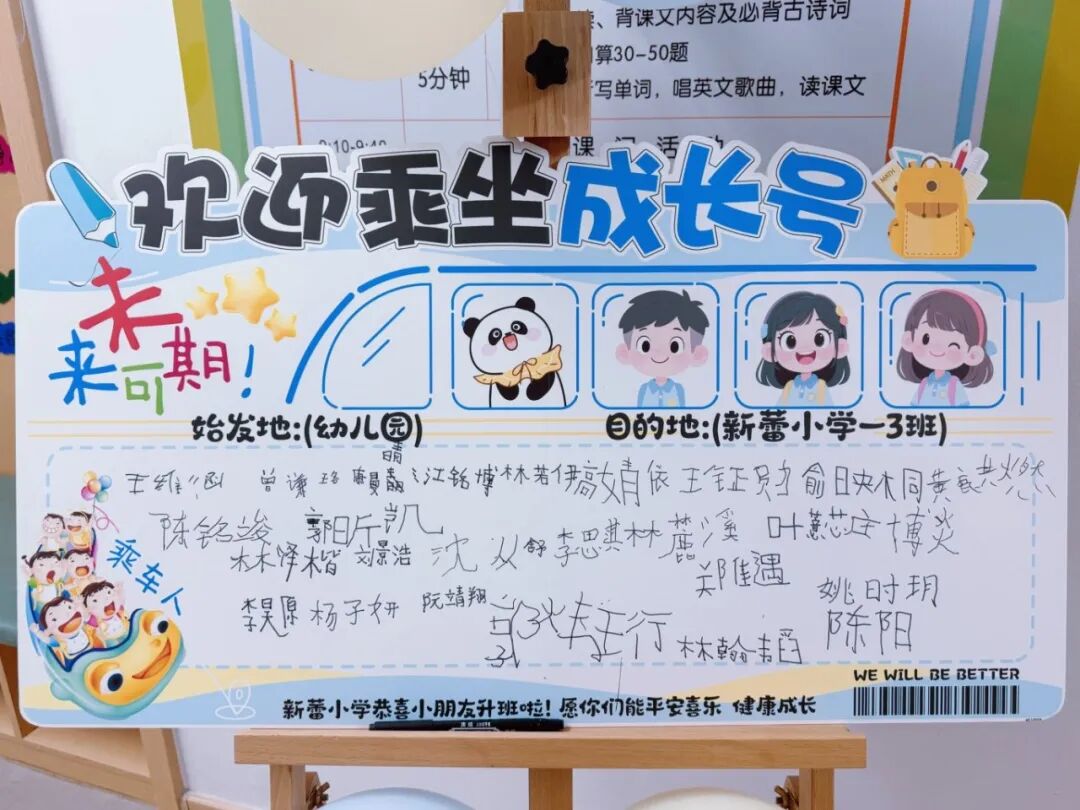 、背课文内容及必背古诗词
算30-50题
5分钟
写单词，唱英文歌曲，读课文
9:10-9:40
课 间 活 动
MATH
欢迎乘坐成长号
未来可期!
始发地:(幼儿园)
目的地:(新蕾小学一3班)
王维 曾 晴 江铭博 林若伊 高婧依 王钰 俞日 林同 黄
陈铭竣 郭斤凯 沈 从舒 李思淇 林麓溪 叶蕙 庄博炎
林泽楷 刘景浩 郑佳遇 姚时玥
李昊原 杨子妍 阮靖翔 行 林翰韬 陈阳
乘车人
WE WILL BE BETTER
新蕾小学恭喜小朋友升班啦! 愿你们能平安喜乐 健康成长